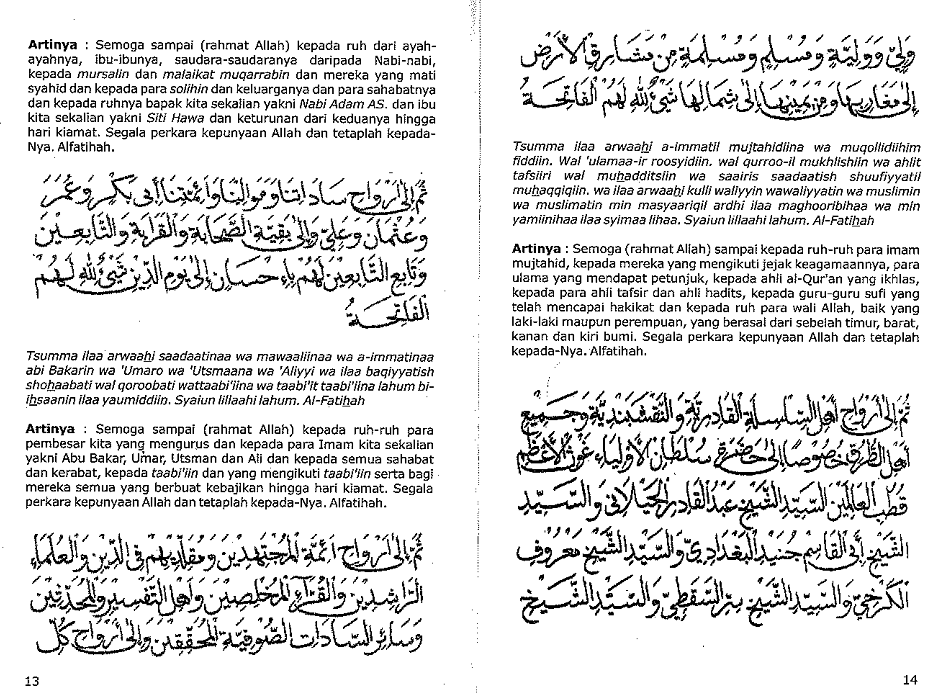 Artinya : Semoga sampai (rahmat Allah) kepada ruh dari ayah-
ayahnya, ibu-ibunya, saudara-saudaranya daripada Nabi-nabi,
kepada mursalin dan malaikat muqarrabin dan mereka yang mati
syahid dan kepada para solihin dan keluarganya dan para sahabatnya
dan kepada ruhnya bapak kita sekalian yakni Nabi Adam AS. dan ibu
kita sekalian yakni Siti Hawa dan keturunan dari keduanya hingga
hari kiamat. Segala perkara kepunyaan Allah dan tetaplah kepada-
Nya. Alfatihah.
ثُمَّ إِلَى أَرْوَاحِ سَادَاتِنَا وَمَوَالِيْنَا وَأَئِمَّتِنَا أَبِي بَكْرٍ وَعُمَرَ
وَعُثْمَانَ وَعَلِيٍّ وَإِلَى بَقِيَّةِ الصَّحَابَةِ وَالْقَرَابَةِ وَالتَّابِعِيْنَ
وَتَابِعِ التَّابِعِيْنَ لَهُمْ بِإِحْسَانٍ إِلَى يَوْمِ الدِّيْنِ شَيْءٌ لِلّٰهِ لَهُمُ
الْفَاتِحَةُ
Tsumma ilaa arwaahi saadaatinaa wa mawaaliinaa wa a-immatinaa
abi Bakarin wa 'Umaro wa 'Utsmaana wa 'Aliyyi wa ilaa baqiyyatish
shohaabati wal qoroobati wattaabi'iina wa taabi'it taabi'iina lahum bi-
ihsaanin ilaa yaumiddiin. Syaiun lillaahi lahum. Al-Fatihah
Artinya : Semoga sampai (rahmat Allah) kepada ruh-ruh para
pembesar kita yang mengurus dan kepada para Imam kita sekalian
yakni Abu Bakar, Umar, Utsman dan Ali dan kepada semua sahabat
dan kerabat, kepada taabi'iin dan yang mengikuti taabi'iin serta bagi
mereka semua yang berbuat kebajikan hingga hari kiamat. Segala
perkara kepunyaan Allah dan tetaplah kepada-Nya. Alfatihah.
ثُمَّ إِلَى أَرْوَاحِ أَئِمَّةِ الْمُجْتَهِدِيْنَ وَمُقَلِّدِيْهِمْ فِي الدِّيْنِ وَالْعُلَمَاءِ
الرَّاشِدِيْنَ وَالْقُرَّاءِ الْمُخْلِصِيْنَ وَأَهْلِ التَّفْسِيْرِ وَالْمُحَدِّثِيْنَ
وَسَائِرِ السَّادَاتِ الصُّوْفِيَّةِ الْمُحَقِّقِيْنَ وَإِلَى أَرْوَاحِ كُلِّ
13
وَلِيٍّ وَوَلِيَّةٍ وَمُسْلِمٍ وَمُسْلِمَةٍ مِنْ مَشَارِقِ الْأَرْضِ
إِلَى مَغَارِبِهَا وَمِنْ يَمِيْنِهَا إِلَى شِمَالِهَا شَيْءٌ لِلّٰهِ لَهُمُ الْفَاتِحَةُ
Tsumma ilaa arwaahi a-immatil mujtahidiina wa muqollidiihim
fiddiin. Wal 'ulamaa-ir roosyidiin. wal qurroo-il mukhlishiin wa ahlit
tafsiiri wal muhadditsiin wa saairis saadaatish shuufiyyatil
muhaqqiqiin. wa ilaa arwaahi kulli waliyyin wawaliyyatin wa muslimin
wa muslimatin min masyaariqil ardhi ilaa maghooribihaa wa min
yamiinihaa ilaa syimaa lihaa. Syaiun lillaahi lahum. Al-Fatihah
Artinya : Semoga (rahmat Allah) sampai kepada ruh-ruh para imam
mujtahid, kepada mereka yang mengikuti jejak keagamaannya, para
ulama yang mendapat petunjuk, kepada ahli al-Qur'an yang ikhlas,
kepada para ahli tafsir dan ahli hadits, kepada guru-guru sufi yang
telah mencapai hakikat dan kepada ruh para wali Allah, baik yang
laki-laki maupun perempuan, yang berasal dari sebelah timur, barat,
kanan dan kiri bumi. Segala perkara kepunyaan Allah dan tetaplah
kepada-Nya. Alfatihah.
ثُمَّ إِلَى أَرْوَاحِ أَهْلِ السِّلْسِلَةِ الْقَادِرِيَّةِ وَالنَّقْشَبَنْدِيَّةِ وَجَمِيْعِ
أَهْلِ الطُّرُقِ خُصُوْصًا إِلَى حَضْرَةِ سُلْطَانِ الْأَوْلِيَاءِ غَوْثِ الْأَعْظَمِ
قُطْبِ الْعَالَمِيْنَ السَّيِّدِ الشَّيْخِ عَبْدِ الْقَادِرِ الْجَيْلَانِيِّ وَالسَّيِّدِ
الشَّيْخِ أَبِي الْقَاسِمِ جُنَيْدِ الْبَغْدَادِيِّ وَالسَّيِّدِ الشَّيْخِ مَعْرُوْفِ
الْكَرْخِيِّ وَالسَّيِّدِ الشَّيْخِ سِرِّ السَّقَطِيِّ وَالسَّيِّدِ الشَّيْخِ
14